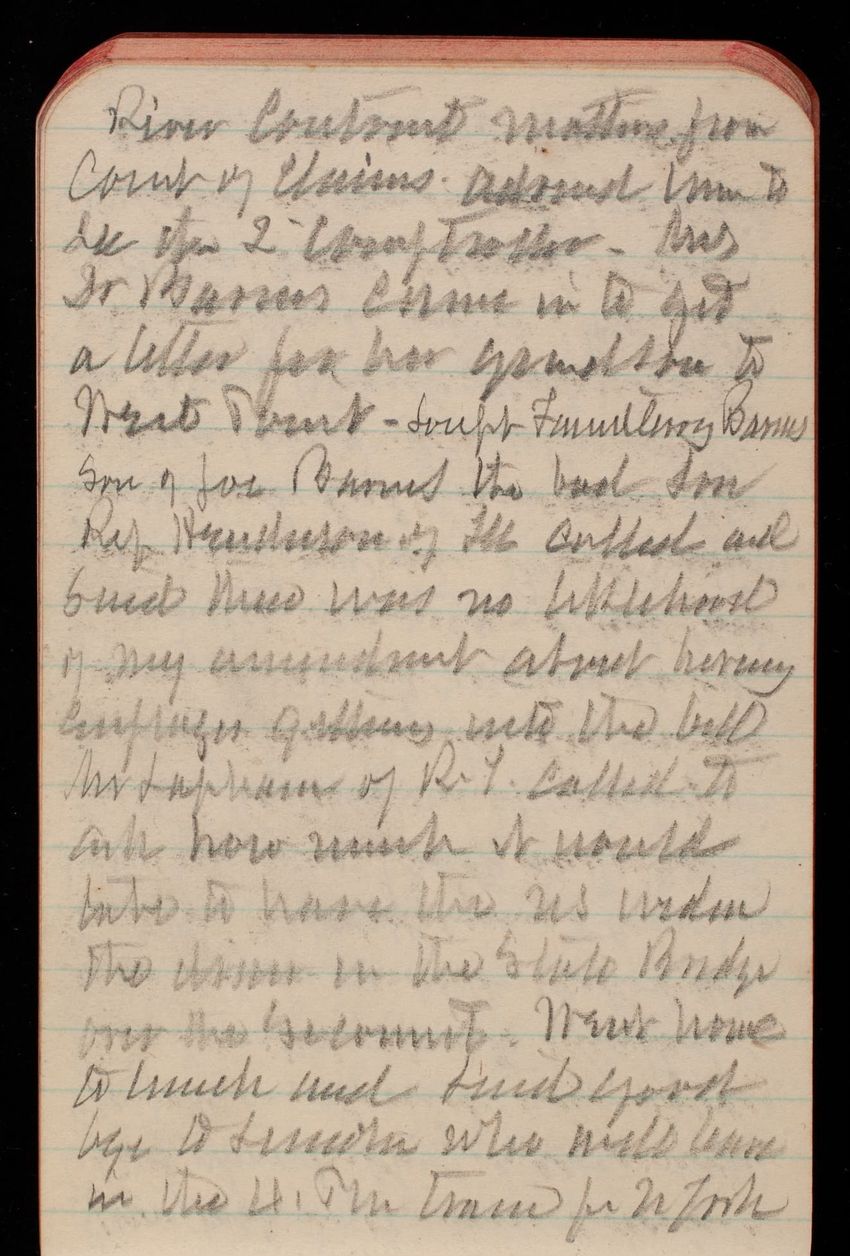 River Contract matters from
Court of Claims. Advised him to
see the 2d Comptroller - Mrs
Dr Barnes came in to get
a letter for her grandson to
West Point -
Son of Joe Barnes the bad son
Rep Henderson of Ill called and
said there was no liklihood
of my amendment about
getting into the bill
Mr Lapham of R.I. called to
ask how much it would
take to have the US widen
the draw in the State Bridge
over the Seconnet. Went home
to lunch and said good
bye to who will leave
in the 4. PM train for N York